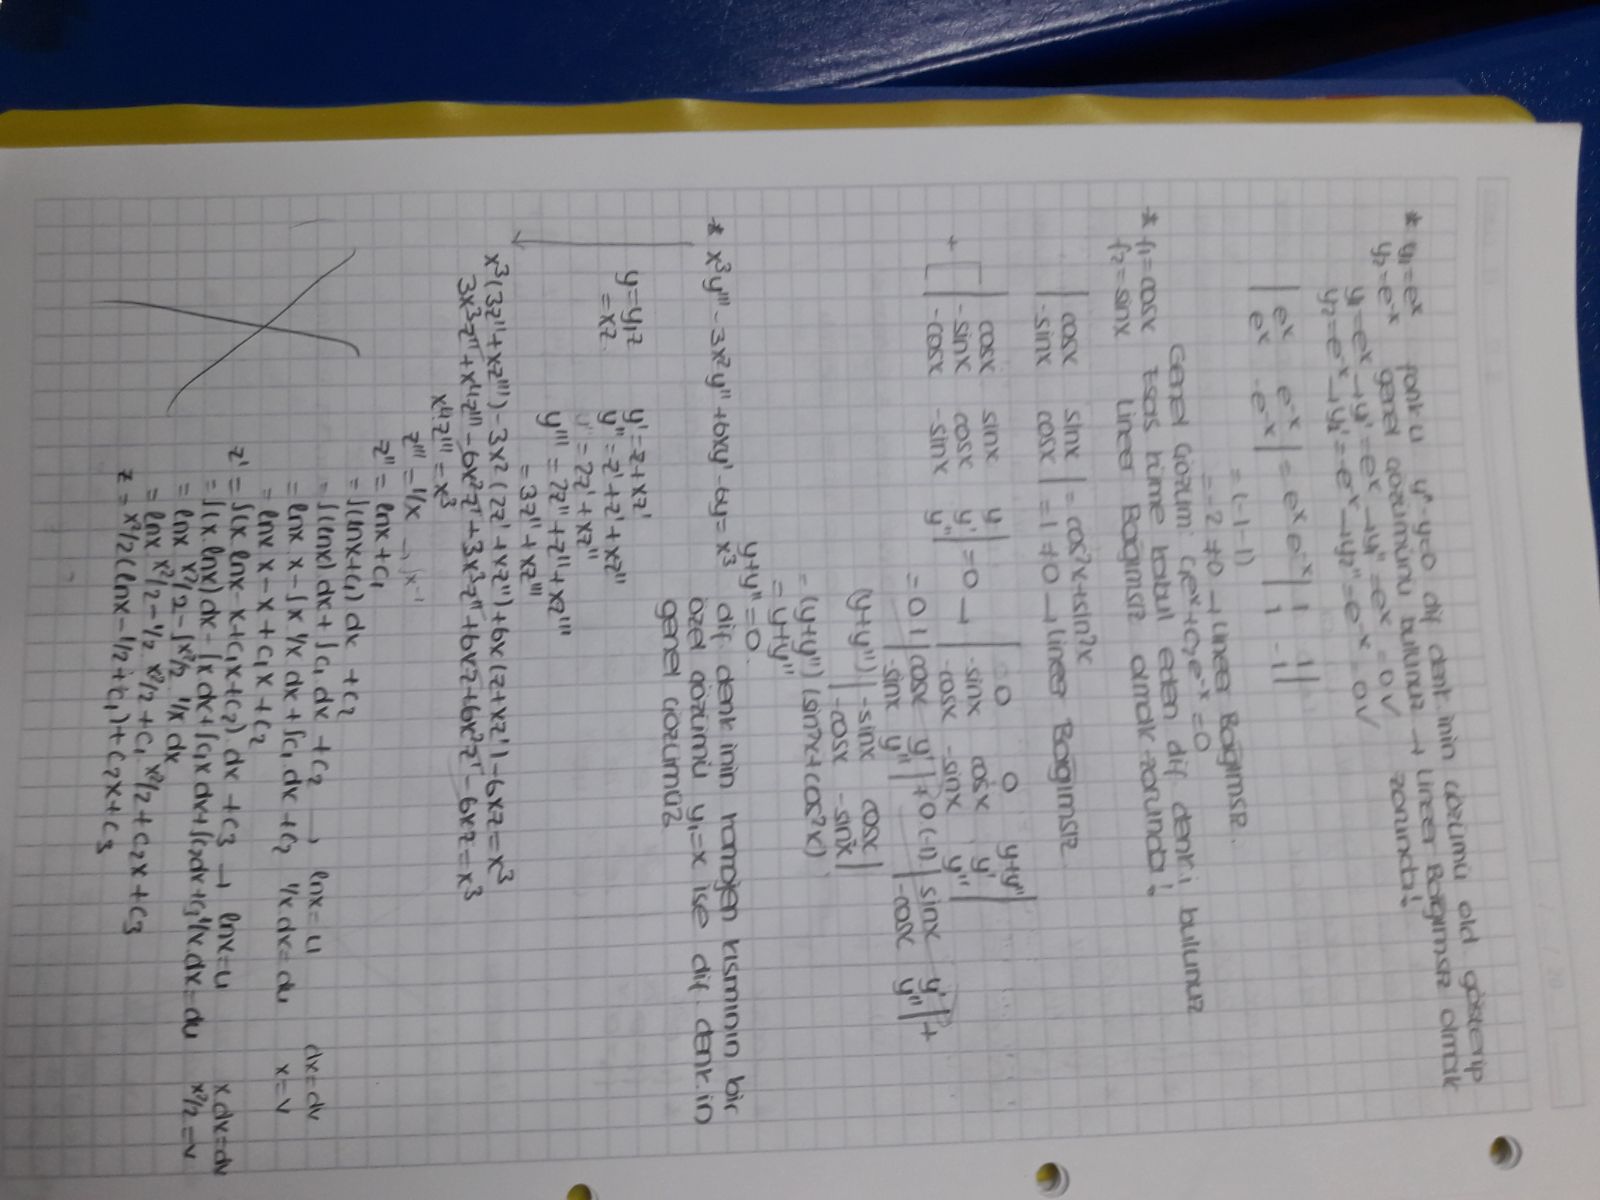 * y₁=eˣ fonk.u y''-y=0 dif denk.inin çözümü old gösterip
y₂=e⁻ˣ genel çözümünü bulunuz → Lineer Bağımsız olmak zorunda!
y₁=eˣ → y'=eˣ → y''=eˣ =0 √
y₂=e⁻ˣ → y₂'=-e⁻ˣ → y₂''=e⁻ˣ =0 √
| eˣ e⁻ˣ | = eˣ e⁻ˣ | 1 1 |
| eˣ -e⁻ˣ | | 1 -1 |
= (-1-1)
= -2 ≠0 → Lineer Bağımsız.
Genel Çözüm: c₁eˣ+c₂e⁻ˣ=0
* f₁=cosx Esas küme kabul eden dif denk.i bulunuz
f₂=sinx Lineer Bağımsız olmak zorunda!
| cosx sinx | = cos²x+sin²x
| -sinx cosx | = 1 ≠0 → Lineer Bağımsız
| cosx sinx y | | 0 0 y+y'' |
+ | -sinx cosx y' | =0 → | -sinx cosx y' |
| -cosx -sinx y'' | | -cosx -sinx y'' |
= 0.1 | cosx y' | +0(-1) | sinx y' | +
| -sinx y'' | | -cosx y'' |
(y+y'') | -sinx cosx |
| -cosx -sinx |
= (y+y'') (sin²x+cos²x)
= y+y''
y+y''=0.
* x³y'''-3x²y''+6xy'-6y=x³ dif denk.inin homojen kısmının bir
özel çözümü y₁=x ise dif denk.in
genel çözümü?
y=y₁z y'=z+xz'
=xz. y''=z'+z'+xz''
=2z'+xz''
y'''=2z''+z''+xz'''
=3z''+xz'''
x³(3z''+xz''')-3x²(2z'+xz'')+6x(z+xz')-6xz=x³
3x³z''+x⁴z'''-6x²z'+3x³z''+6xz+6x²z'-6xz=x³
x⁴z'''=x³
z'''=1/x → ∫x⁻¹
z''=lnx+c₁
=∫(lnx+c₁) dx +c₂
=∫(lnx).dx+∫c₁.dx +c₂ , lnx=u dx=dv
=lnx x-∫x 1/x dx+∫c₁.dx +c₂ 1/x.dx=du x=v
=lnx x-x+c₁x+c₂
z'=∫(x.lnx-x+c₁x+c₂).dx +c₃ → lnx=u x.dx=dv
=∫(x.lnx)dx-∫x dx+∫c₁x dx+∫c₂dx+c₃ 1/x.dx=du x²/2=v
=lnx x²/2-∫x²/2 1/x dx
=lnx x²/2-1/2.x²/2+c₁ x²/2+c₂x+c₃
z=x²/2(lnx-1/2+c₁)+c₂x+c₃